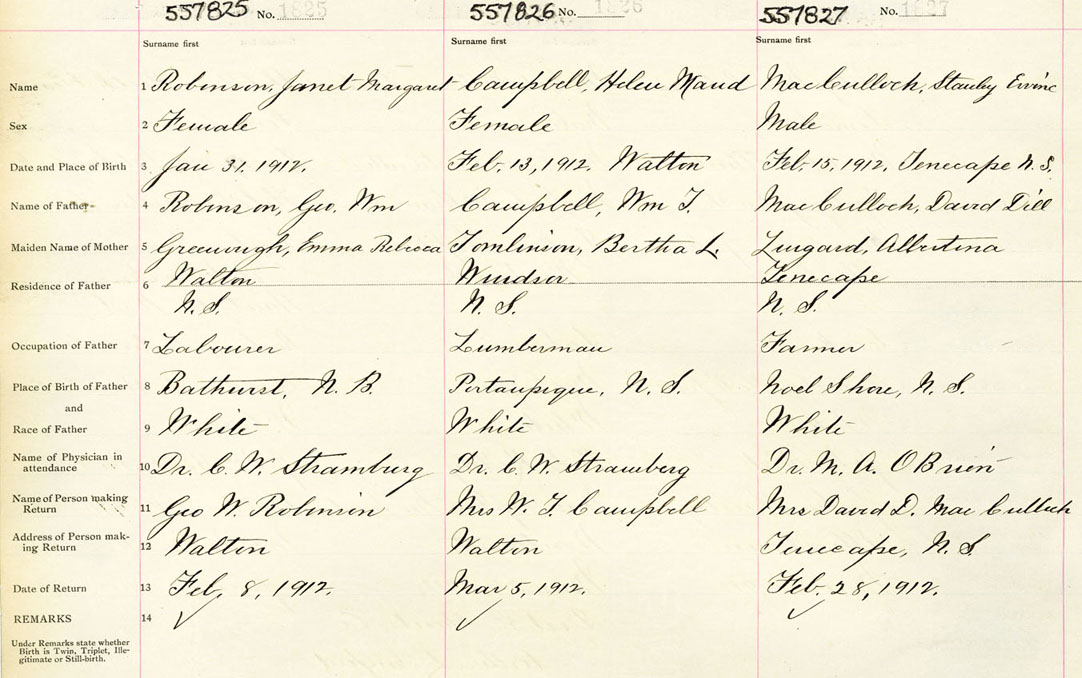 557825 No. 1825 557826 No. 1826 557827 No. 1827
Surname first Surname first Surname first
Name 1 Robinson, Janet Margaret Campbell, Helen Maud MacCulloch, Stanley Ervine
Sex 2 Female Female Male
Date and Place of Birth 3 Jan 31, 1912. Feb. 13, 1912, Walton Feb. 15, 1912, Tenecape N. S.
Name of Father 4 Robinson, Geo. Wm Campbell, Wm T. MacCulloch, David Dill
Maiden Name of Mother 5 Greenough, Emma Rebecca Tomlinson, Bertha L. Lungard, Albertina
Walton Windsor Tenecape
Residence of Father 6
N. S. N. S. N. S.
Occupation of Father 7 Labourer Lumberman Farmer
Place of Birth of Father 8 Bathurst, N. B. Portaupique, N. S. Noel Shore, N. S.
and
Race of Father 9 White White White
Name of Physician in
attendance 10 Dr. C. W. Stramburg Dr. C. W. Stramberg Dr. M. A. O'Brien
Name of Person making
Return 11 Geo W. Robinson Mrs W. T. Campbell Mrs David D. MacCulloch
Address of Person mak-
ing Return 12 Walton Walton Tenecape, N. S.
Date of Return 13 Feb. 8, 1912. Mar 5, 1912. Feb. 28, 1912.
REMARKS 14
Under Remarks state whether
Birth is Twin, Triplet, Ille-
gitimate or Still-birth.